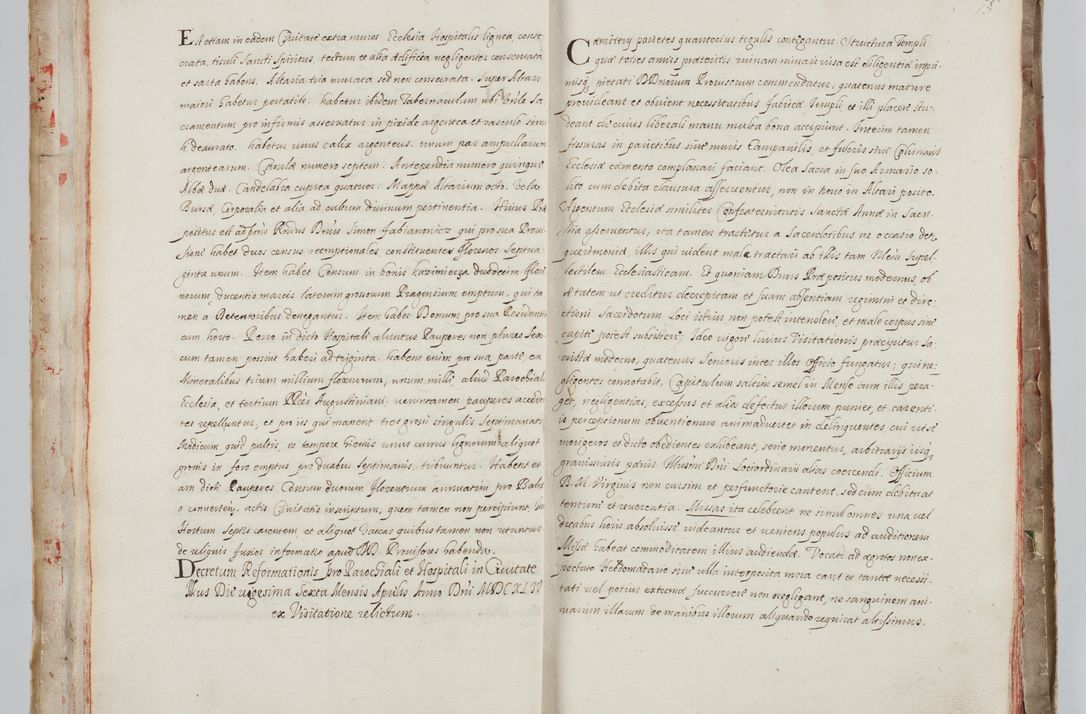 Est etiam in eadem Civitate extra muros Ecclesia Hospitalis lignea conse
crata, tituli Sancti Spiritus, tectum et alia ædificia negligenter conservata
et sarta habens. Altaria tria murata sed non consecrata. Super Altari
maiori habetur portatile. habetur ibidem Tabernaculum ubi Vnble Sa,
cramentum pro infirmis asservatur in pixide argentea et vasculo simi
li deaurato. habetur unus calix argenteus. unum par ampullarum
argentearum. Casulæ numero septem. Antependia numero quinque
Albæ duæ. Candelabra cuprea quatuor. Mappæ Altarium octo. Vela
Bursæ, Corporalia et alia ad cultum divinum pertinentia. Huius Præ
positus est ad præns Rndus Bnus Simon Fabianowicz qui pro sua Provi
sione habet duos census reemptionales, constituentes florenos Septua
ginta unum. Item habet Censum in bonis kazimierza duodecim flore
norum, ducentis marcis latorum grossorum Pragensium emptum, qui ta
men a Detentoribus denegantur. Item habet Domum pro sua Residentia
cum horto. Porro in dicto Hospitali aluntur Pauperes non plures Sex
cum tamen possint haberi ad triginta. habent enim pro sua parte ca
tioneralibus trium millium florenorum, unum mille, aliud Parochialis
Ecclesia, et tertium PPres Augustiniani. veruntamen pauperes acceden
tes repelluntur, et pro iis qui manent tres grossi singulis Septimanatim
Radicum quid pultis, et tempore hiemis unus currus lignorum aliquot
grossis in foro emptus pro duabus septimanis, tribuuntur. Habent et
iam dicti Pauperes Censum duorum florenorum annuatim pro Balne
o convertens, actis Civitatis inscriptum, quem tamen non percipiunt,
Hortum Septis carentem et aliquot Vaccas quibus tamen non utuntur
de reliquis fusior informatio apud DD. Provisores habenda.
Decretum Reformationis pro Parochiali et Hospitali in Civitate
Ilkus Die vigesima Sexta Mensis Aprilis Anno Dni MDCXLIV
ex Visitatione relictum.
Cæmitery parietes quantocius tegulis contegantur. Structura Templi
quæ toties annis præteritis ruinam minari visa est diligentiæ inpri
misq. pietati DDnorum Provisorum commendatur, quatenus mature
provideant et obvient necessitatibus fabricæ Templi, et illi placere stu
deant de cuius liberali manu multa bona accipiunt. Interim tamen
fissuras in parietibus sive muris Campanilis, et fulcris sive Columnis
Ecclesiæ cæmento complanari faciant. Olea Sacra in suo Armario so
lito cum debita clausura asserventur, non in novo in Altari posito.
Argentum Ecclesiæ similiter Confraternitatis Sanctæ Annæ in Sacri
stia asserventur, ita tamen tractetur a Sacerdotibus ne occasio detur
querimoniæ, illis qui vident male tractari ab illis tam Illem Supel
lectilem Ecclesiasticam. Et quoniam Bnus Præpositus modernus, ob
ætatem ut creditur decrepitam et suam absentiam regimini et dire
ctioni Sacerdotum Loci istius non potest intendere, et male corpus sine
capite potest subsistere; Ideo vigore huius Visitationis præcipitur Sa
cristæ moderno, quatenus Senioris inter illos Officio fungatur; quinu,
gligentes connotabit, Capitulum saltim semel in Mense cum illis pera
get, negligentias, excessus et alia defectus illorum puniet, et carenti
is perceptionum obventionum animadvertet in delinquentes cui ut se
morigeros et dicto obedientes exhibeant, serio monentur, arbitrariis usq.
gravissimis pænis Illustmi Dni Loci ordinarii alias coercendi. Officium
B. M. Virginis non cursim et perfunctorie cantent, sed cum debita at
tentione et reverentia. Missas ita celebrent ne simul omnes una vel
duabus horis absoluisse videantur et veniens populus ad auditionem
Missæ habeat commoditatem illius audiendæ. Vocati ad ægrotos non ex
pectato Hebdomadario sine ulla interposita mora eant et tantæ necessi
tati vel potius extremæ succurrere non negligant, ne sanguinem ani
marum illarum de manibus illorum aliquando requirat altissimus.